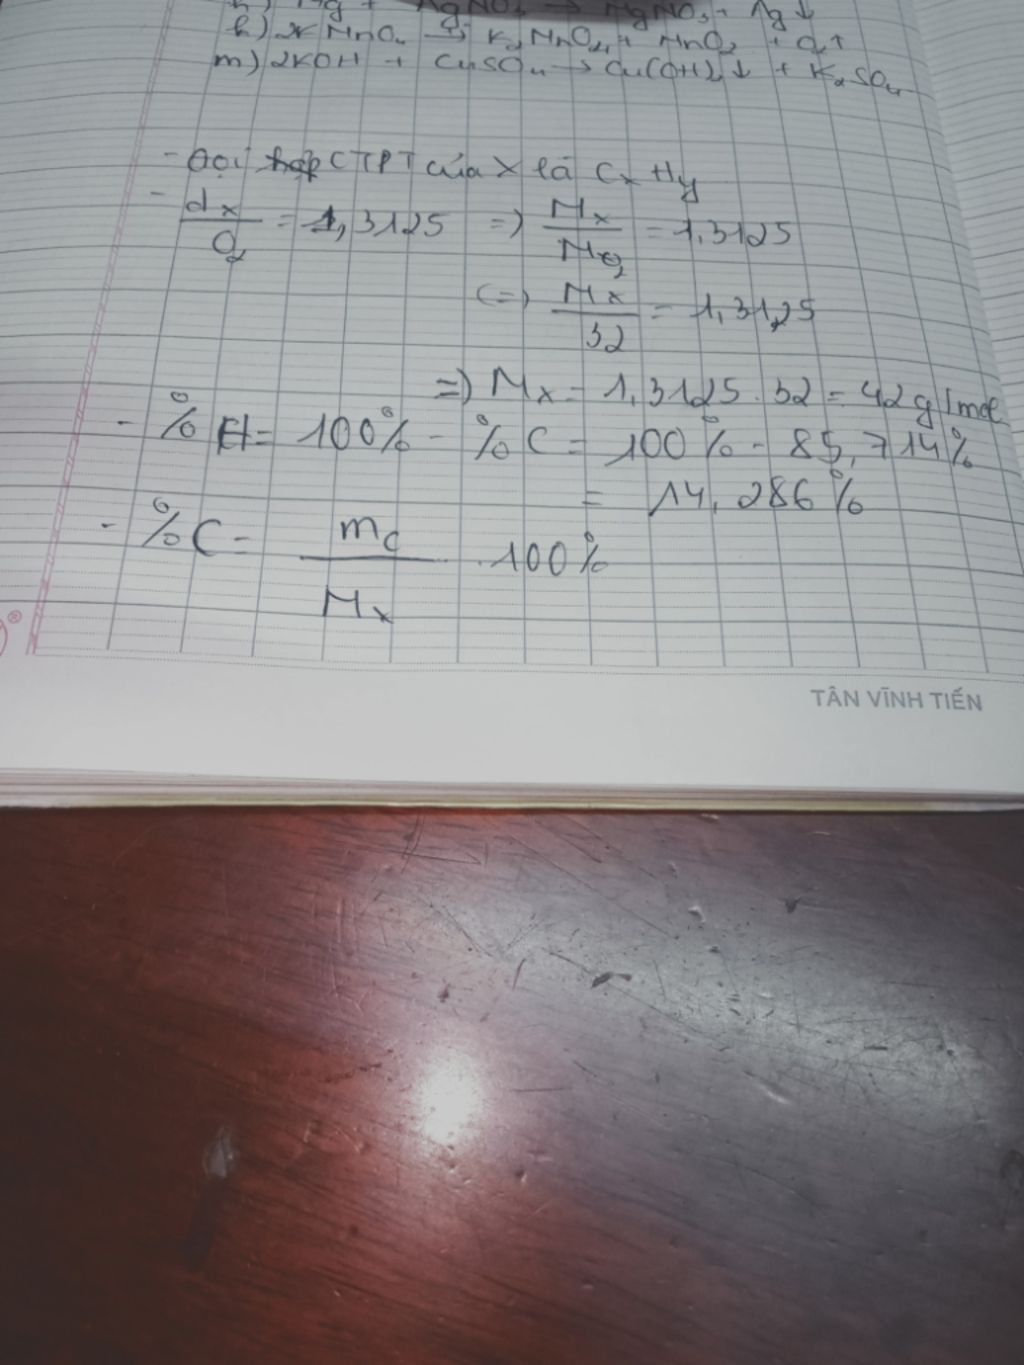 Mg + AgNO3 → MgNO3 + Ag↓
k) 2KMnO4 → K2MnO4 + MnO2 + O2↑
m) 2KOH + CuSO4 → Cu(OH)2↓ + K2SO4
- Gọi CTPT của X là CxHy
- dx/O2 = 1,3125 => Mx/MO2 = 1,3125
<=> Mx/32 = 1,3125
=> Mx = 1,3125 . 32 = 42 g/mol
- % H = 100% - % C = 100% - 85,714%
= 14,286%
- %C = mC/Mx . 100%
TÂN VĨNH TIẾN